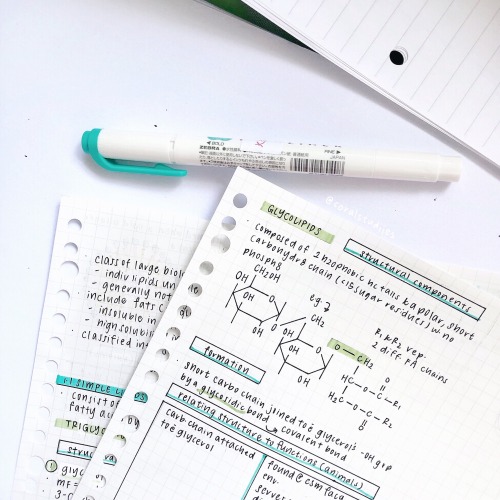 BOLD
ZEBRA
FINE
JAPAN
GLYCOLIPIDS
structural components
composed of 2 h2ophobic hc tails & a polar, short
carbohydr8 chain (<15 sugar residues) w no
phosph8
CH2OH
OH
OH
OH
OH
OH
OH
eg
CH2
O — CH2
HC — O — C — R1
O
H2C — O — C — R2
O
R1 & R2 rep.
2 diff. FA chains
formation
short carbo chain joined to glycerol's -OH grp
by a glycosidic bond
covalent bond
relating structure to functions (animals)
carb chain attached
to glycerol
found @ csm facing
env.
class of large biol
- indiv lipids un
- generally not
include fats
- insoluble in
- high solubili
classified in
1.1 simple
consist o
fatty a
TRIGLY
structu
1 glyc
mf =
3-C